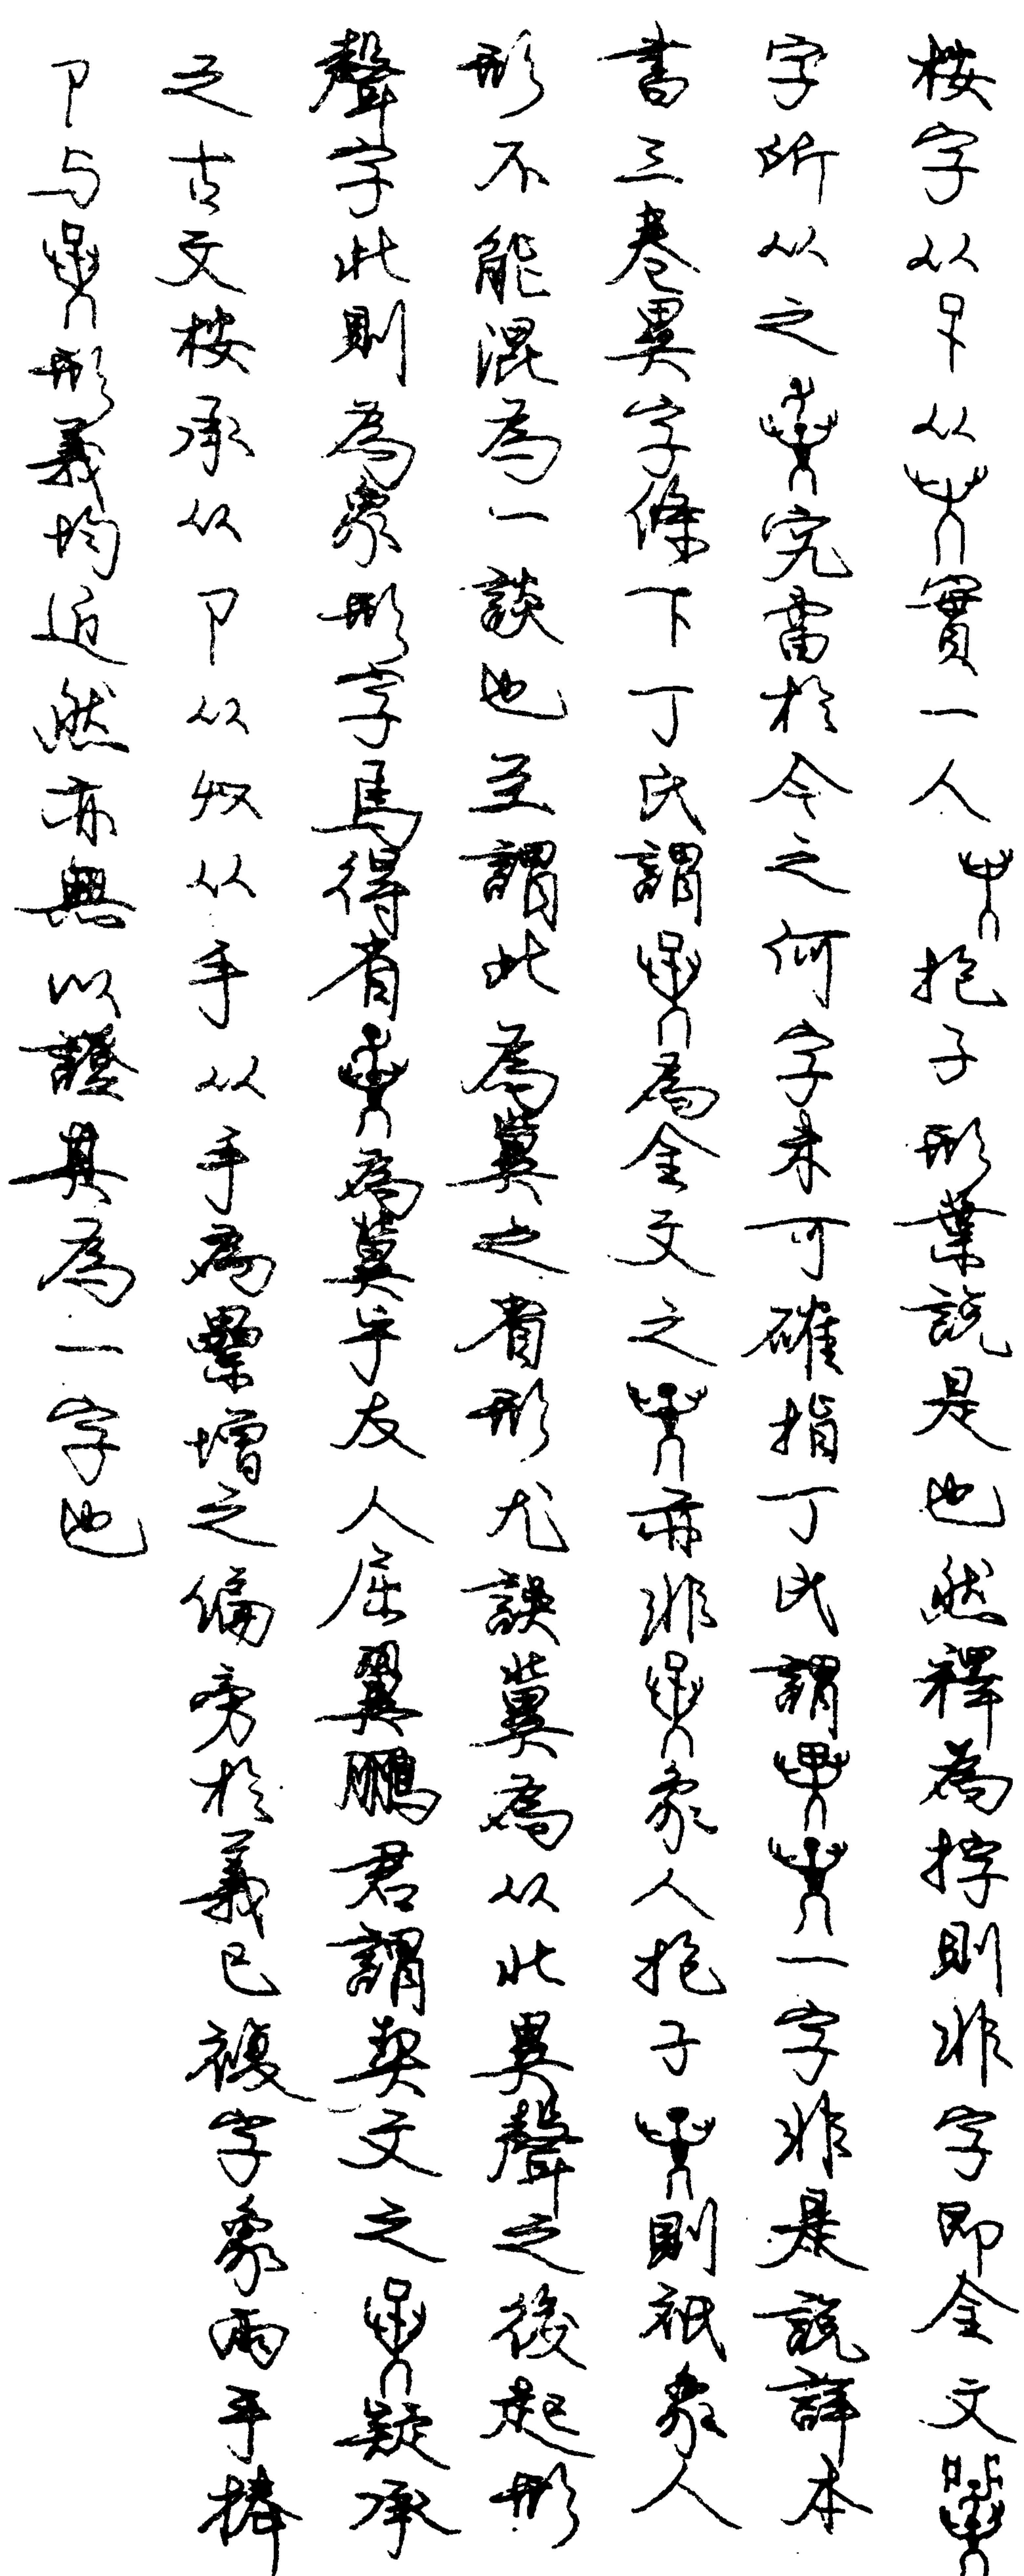 按字从早从實一人抱子形葉說是也然釋為㧱則非字即金文
字所从之究當於今之何字未可確指丁氏謂一字非是說詳本
書三卷異字條下丁氏謂為金文之亦非象人抱子則祇象人
形不能混為一談也至謂此為冀之省形尤誤冀為从北異聲之後起形
聲字此則為象形字焉得省為冀乎友人屈翼鵬君謂契文之疑承
之古文按承从卩从𠬞从手从手為纍增之偏旁於義已複字象兩手捧
卩与形義均近然亦無以證其為一字也